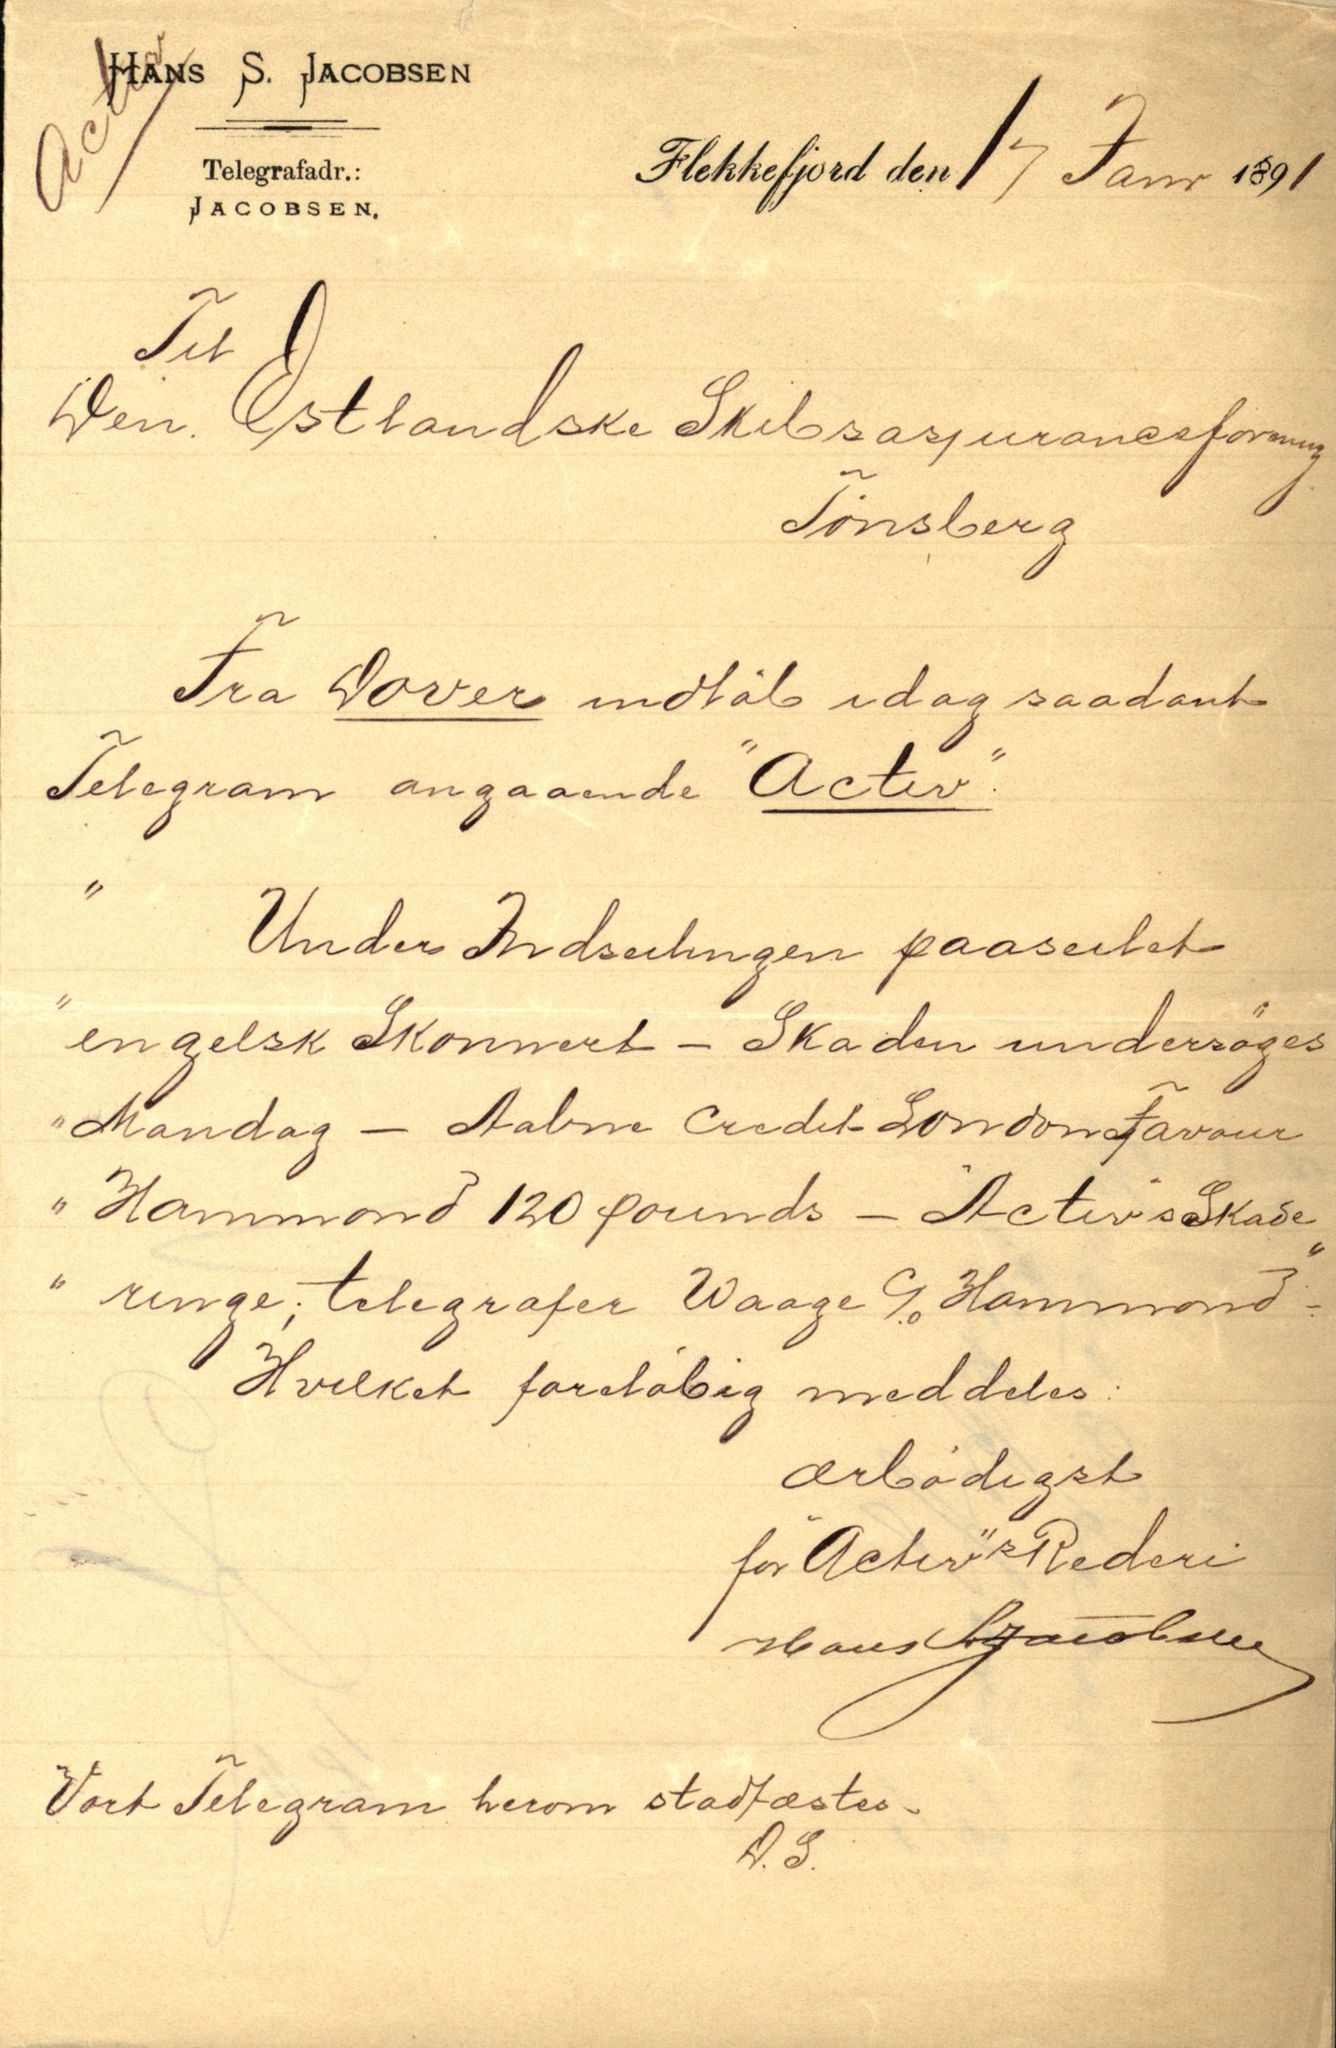 Activ
HANS S. JACOBSEN
Telegrafadr.:
JACOBSEN.
Flekkefjord den 17 Janr 1891
Til
Den Østlandske Skibsassuranceforening
Tönsberg
Fra Dover indlöb idag saadant
Telegram angaaende "Activ".
" Under Indseilingen paaseilet
" engelsk Skonnert – Skaden undersöges
" Mandag – Aabne Credit London Favour
" Hammond 120 pounds – Activ's Skade
" ringe; telegrafer Waage C/o Hammond".
Hvilket foreløbig meddeles:
ærbödigst
for "Activ"s Rederi
Hans S Jacobsen
Vort Telegram herom stadfæstes.
D. S.